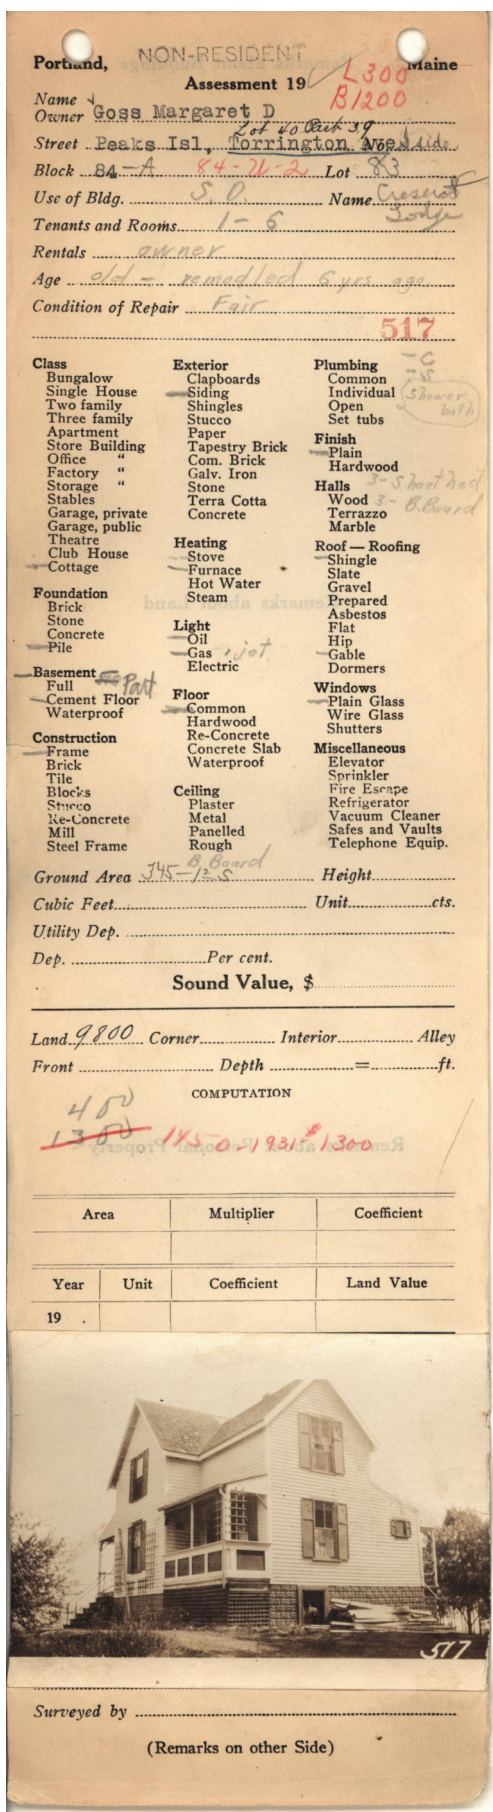 NON-RESIDENT
Portland, Maine
Assessment 19
L300
B1200
Name
Owner Goss Margaret D
Lot 40 Part 39
Street Peaks Isl, Torrington Ave side
Block 84-A 84-U-2 Lot 83
Use of Bldg. S. D. Name Crescent Lodge
Tenants and Rooms 1-6
Rentals owner
Age old - remodled 6 yrs. ago.
Condition of Repair Fair
517
Class
Bungalow
Single House
Two family
Three family
Apartment
Store Building
Office "
Factory "
Storage "
Stables
Garage, private
Garage, public
Theatre
Club House
Cottage
Foundation
Brick
Stone
Concrete
Pile
Basement Part
Full
Cement Floor
Waterproof
Construction
Frame
Brick
Tile
Blocks
Stucco
Re-Concrete
Mill
Steel Frame
Exterior
Clapboards
Siding
Shingles
Stucco
Paper
Tapestry Brick
Com. Brick
Galv. Iron
Stone
Terra Cotta
Concrete
Heating
Stove
Furnace
Hot Water
Steam
Light
Oil
Gas . jet
Electric
Floor
Common
Hardwood
Re-Concrete
Concrete Slab
Waterproof
Ceiling
Plaster
Metal
Panelled
Rough
B. Board
Plumbing -C
Common -S
Individual shower
Open bath
Set tubs
Finish
Plain
Hardwood
Halls 3-Sheathed
Wood 3-B.Board
Terrazzo
Marble
Roof — Roofing
Shingle
Slate
Gravel
Prepared
Asbestos
Flat
Hip
Gable
Dormers
Windows
Plain Glass
Wire Glass
Shutters
Miscellaneous
Elevator
Sprinkler
Fire Escape
Refrigerator
Vacuum Cleaner
Safes and Vaults
Telephone Equip.
Ground Area 345-1 2 S Height
Cubic Feet Unit cts.
Utility Dep.
Dep. Per cent.
Sound Value, $
Land 9800 Corner Interior Alley
Front Depth = ft.
COMPUTATION
400
1300 1450-1931-$1300
Area Multiplier Coefficient
Year Unit Coefficient Land Value
19 .
517
Surveyed by
(Remarks on other Side)